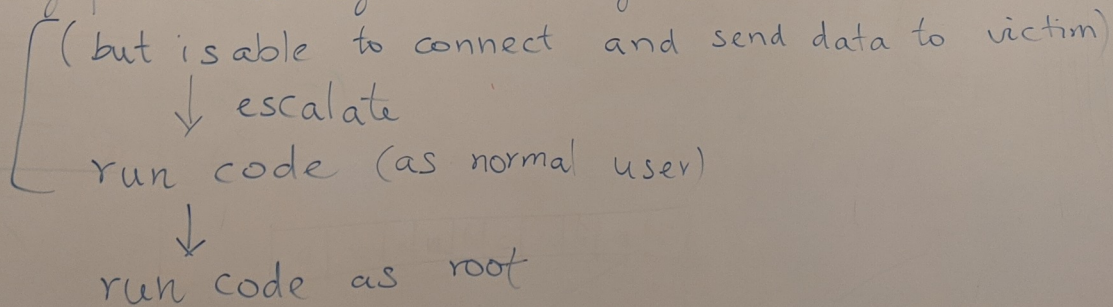 (but is able to connect and send data to victim)
↓ escalate
run code (as normal user)
↓
run code as root